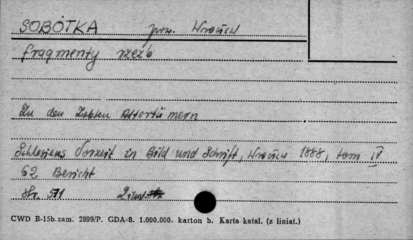 SOBÓTKA pow. Wrocław
fragmenty rzeźb
Zu den Zobten Altertümern
Schlesiens Vorzeit in Bild und Schrift, Wrocław 1888, tom IV
62 Bericht
CWD B-15b. zam. 2899/P. GDA-8. 1.000.000. karton b. Karta katal. (z liniat.)